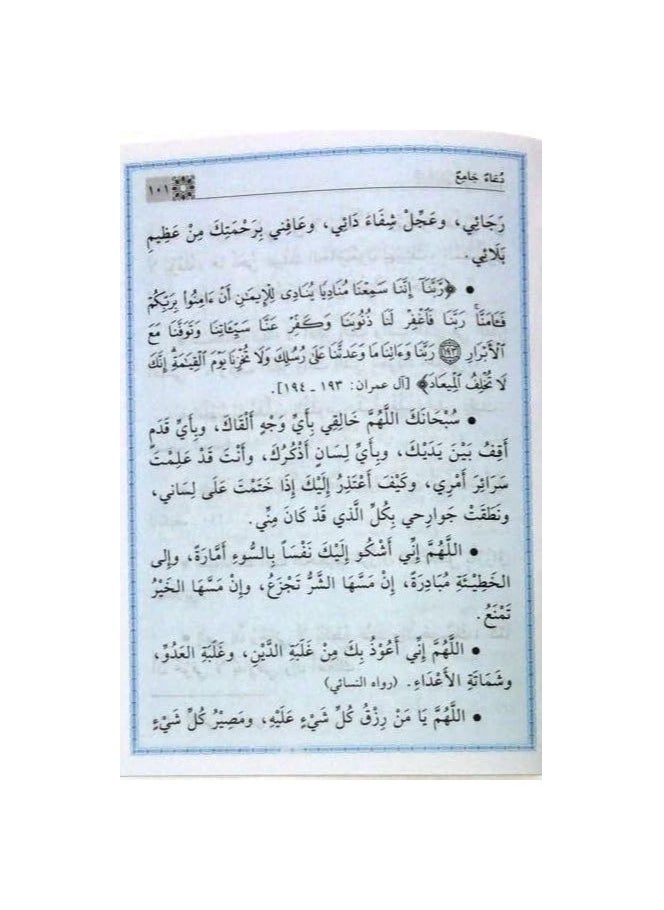 دُعَاءٌ جَامِعٌ
١٠١
رَجَائِي، وعَجِّلْ شِفَاءَ دَائِي، وعَافِني بِرَحْمَتِكَ مِنْ عَظِيمِ
بَلَائِي.
• ﴿رَّبَّنَآ إِنَّنَا سَمِعْنَا مُنَادِيًا يُنَادِى لِلْإِيمَـٰنِ أَنْ ءَامِنُوا۟ بِرَبِّكُمْ
فَـَٔامَنَّا ۚ رَبَّنَا فَٱغْفِرْ لَنَا ذُنُوبَنَا وَكَفِّرْ عَنَّا سَيِّـَٔاتِنَا وَتَوَفَّنَا مَعَ
ٱلْأَبْرَارِ ۝١٩٣ رَبَّنَا وَءَاتِنَا مَا وَعَدتَّنَا عَلَىٰ رُسُلِكَ وَلَا تُخْزِنَا يَوْمَ ٱلْقِيَـٰمَةِ ۗ إِنَّكَ
لَا تُخْلِفُ ٱلْمِيعَادَ﴾ [آل عمران: ١٩٣ ـ ١٩٤].
• سُبْحَانَكَ اللَّهُمَّ خَالِقِي بِأَيِّ وَجْهٍ أَلْقَاكَ، وبِأَيِّ قَدَمٍ
أَقِفُ بَيْنَ يَدَيْكَ، وبِأَيِّ لِسَانٍ أَذْكُرُكَ، وأَنْتَ قَدْ عَلِمْتَ
سَرَائِرَ أَمْرِي، وكَيْفَ أَعْتَذِرُ إِلَيْكَ إِذَا خَتَمْتَ عَلَى لِسَاني،
ونَطَقَتْ جَوَارِحي بِكُلِّ الَّذي قَدْ كَانَ مِنِّي.
• اللَّهُمَّ إِنِّي أَشْكُو إِلَيْكَ نَفْسَاً بِالسُّوءِ أَمَّارَةً، وإلى
الخَطِيْئَةِ مُبَادِرَةً، إِنْ مَسَّهَا الشَّرُّ تَجْزَعُ، وإِنْ مَسَّهَا الخَيْرُ
تَمْنَعُ.
• اللَّهُمَّ إِنِّي أَعُوْذُ بِكَ مِنْ غَلَبَةِ الدَّيْنِ، وغَلَبَةِ العَدُوِّ،
وشَمَاتَةِ الأَعْدَاءِ. (رواه النسائي)
• اللَّهُمَّ يَا مَنْ رِزْقُ كُلِّ شَيْءٍ عَلَيْهِ، ومَصِيْرُ كُلِّ شَيْءٍ